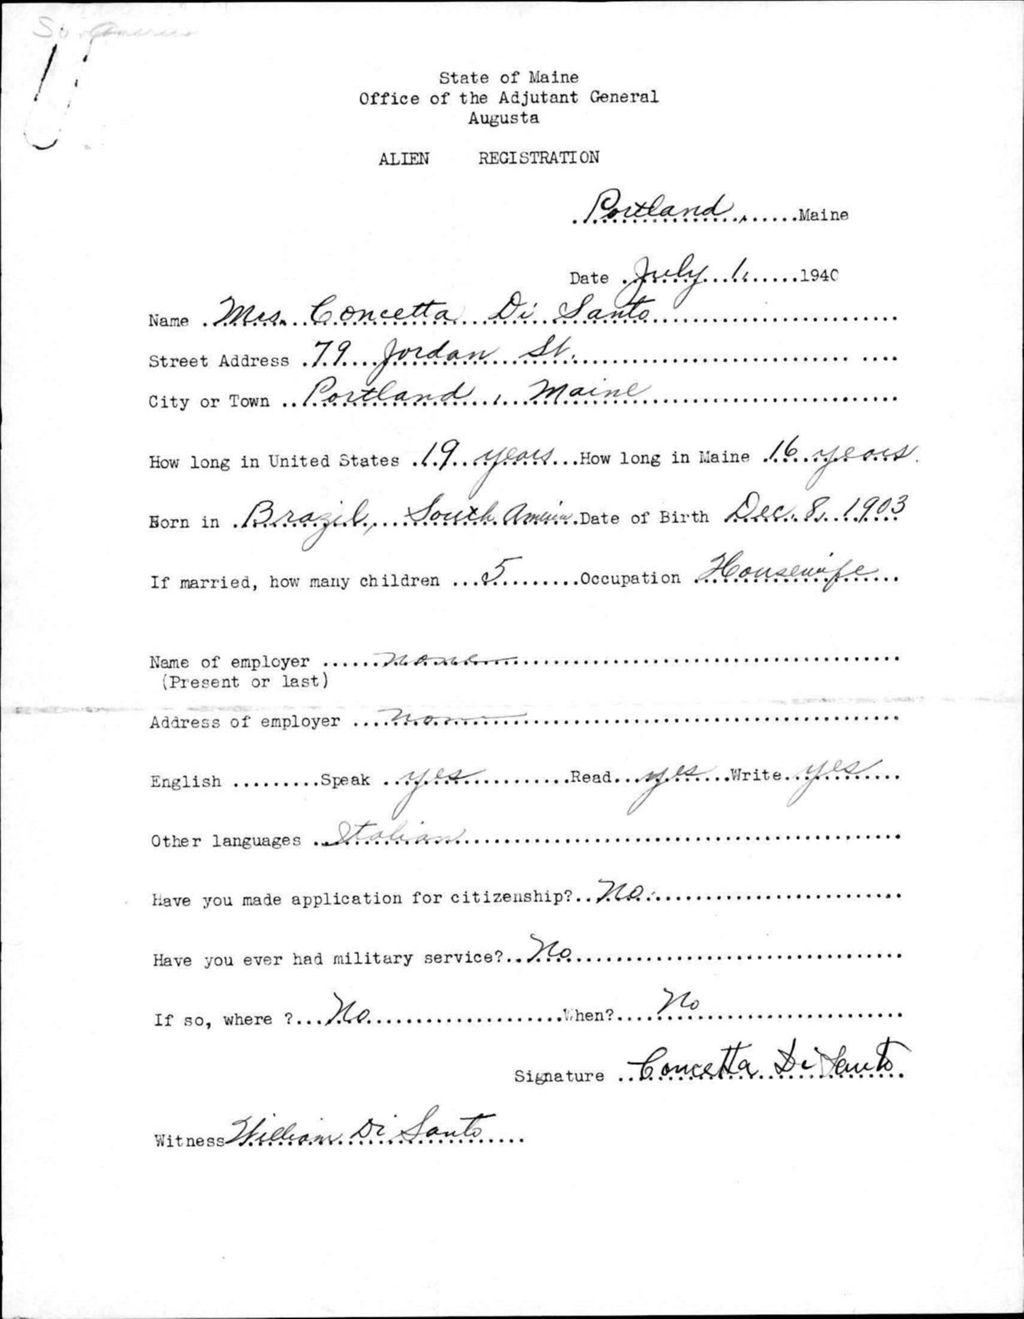 So. America
State of Maine
Office of the Adjutant General
Augusta
ALIEN REGISTRATION
Portland, Maine
Date July 1. 1940
Name Mrs. Concetta Di Santo
Street Address 79 Jordan St.
City or Town Portland, Maine
How long in United States 19 years How long in Maine 16 years.
Born in Brazil, South America Date of Birth Dec. 8, 1903
If married, how many children 5 Occupation Housewife
Name of employer none
(Present or last)
Address of employer none
English Speak yes Read yes Write yes
Other languages Italian
Have you made application for citizenship? No.
Have you ever had military service? No
If so, where ? No When? No
Signature Concetta Di Santo
Witness William Di Santo